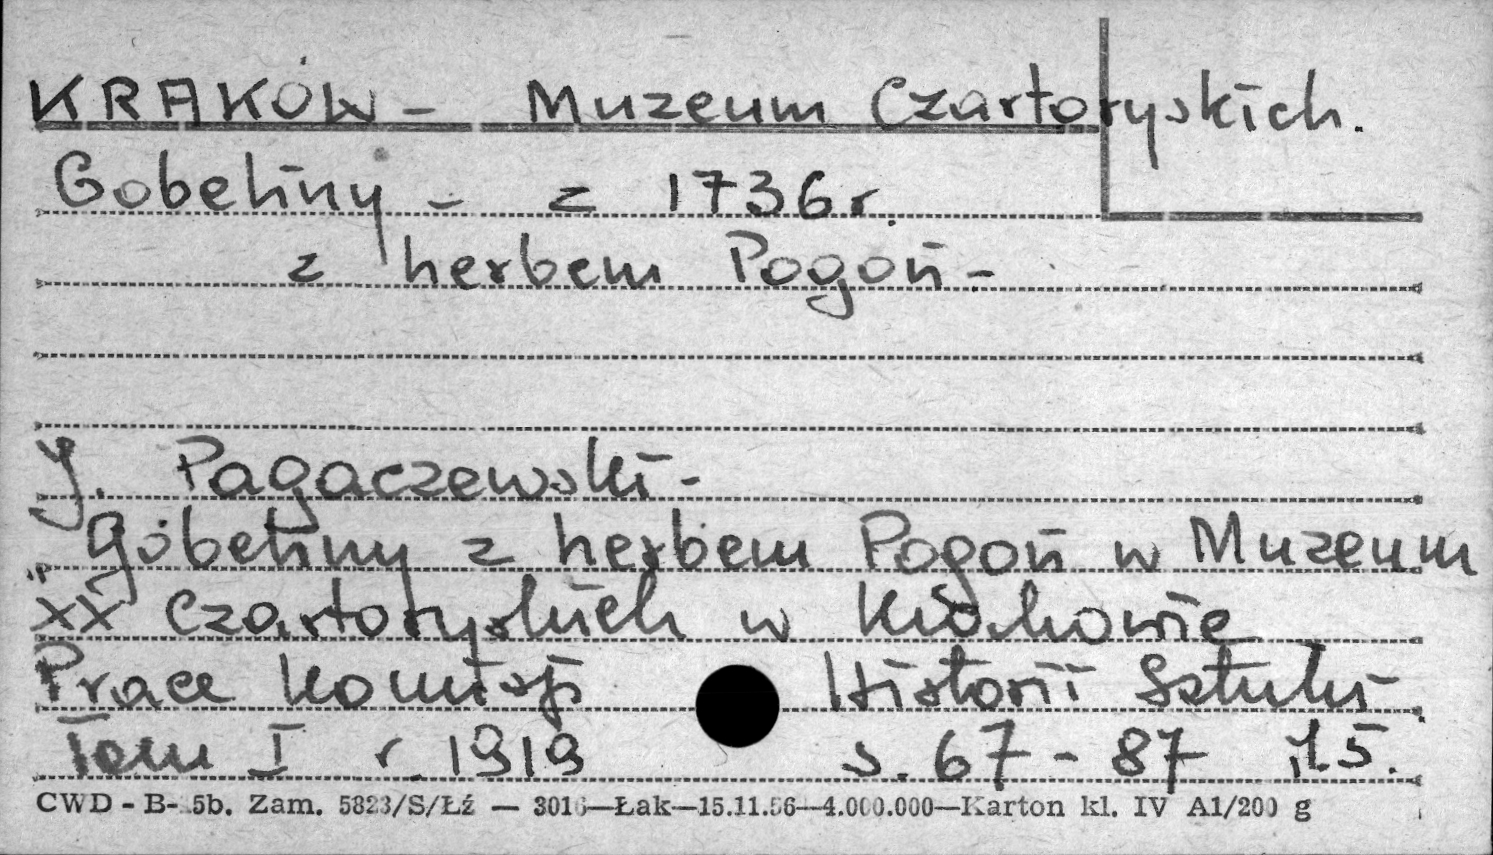 KRAKÓW - Muzeum Czartoryskich.
Gobeliny - z 1736 r.
z herbem Pogoń -
J. Pagaczewski -
"Gobeliny z herbem Pogoń w Muzeum
XX Czartoryskich w Krakowie
Prace Komisji Historii Sztuki
Tom I r. 1919 s. 67 - 87
CWD - B- 5b. Zam. 5823/S/Łź — 3016—Łak—15.11.56—4.000.000—Karton kl. IV A1/200 g